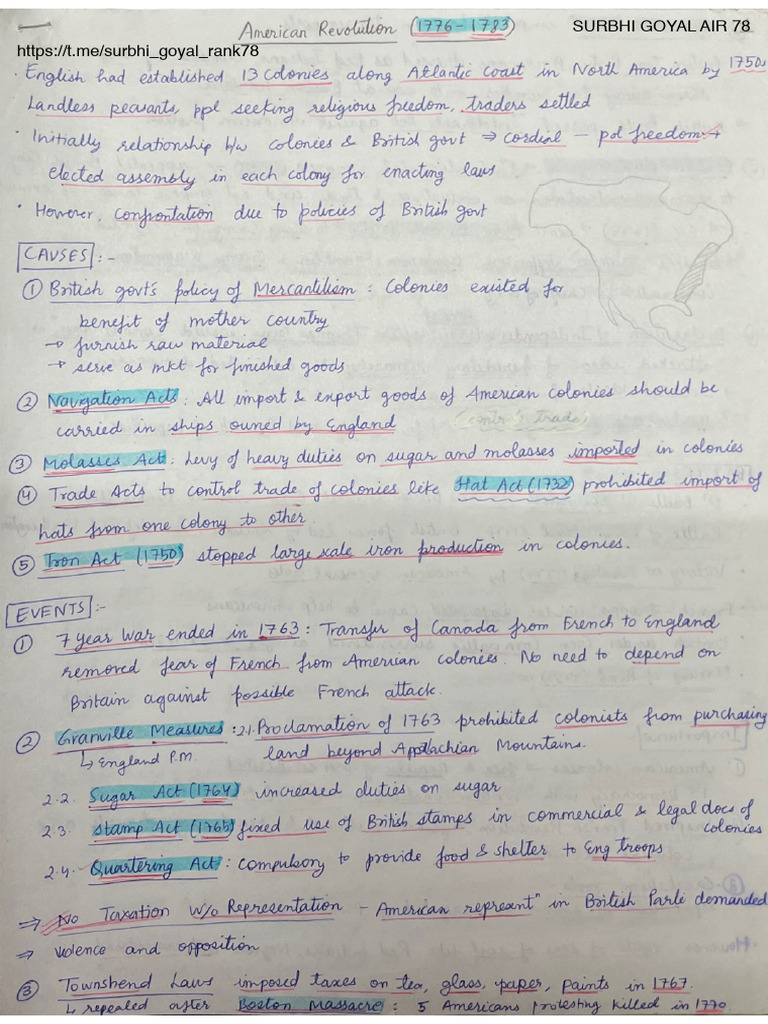 American Revolution (1776-1783)
SURBHI GOYAL AIR 78
https://t.me/surbhi_goyal_rank78
· English had established 13 colonies along Atlantic Coast in North America by 1750s
Landless peasants, ppl seeking religious freedom, traders settled
· Initially relationship b/w colonies & British govt ⇒ cordial - pol freedom +
elected assembly in each colony for enacting laws
· However, confrontation due to policies of British govt
CAUSES :-
① British govt's policy of Mercantilism : Colonies existed for
benefit of mother country
→ furnish raw material
→ serve as mkt for finished goods
② Navigation Acts : All import & export goods of American colonies should be
carried in ships owned by England (control trade)
③ Molasses Act : Levy of heavy duties on sugar and molasses imported in colonies
④ Trade Acts to control trade of colonies like Hat Act (1732) prohibited import of
hats from one colony to other
⑤ Iron Act (1750) stopped large scale iron production in colonies.
EVENTS :-
① 7 Year War ended in 1763 : Transfer of Canada from French to England
removed fear of French from American colonies. No need to depend on
Britain against possible French attack.
② Granville Measures : 2.1. Proclamation of 1763 prohibited colonists from purchasing
↳ England P.M. land beyond Appalachian Mountains.
2.2. Sugar Act (1764) increased duties on sugar
2.3. Stamp Act (1765) fixed use of British stamps in commercial & legal docs of
colonies
2.4. Quartering Act : compulsory to provide food & shelter to Eng troops
⇒ No Taxation w/o Representation - American represent^n in British Parle demanded
⇒ violence and opposition
③ Townshend Laws imposed taxes on tea, glass, paper, paints in 1767.
↳ repealed after Boston Massacre : 5 Americans protesting killed in 1770.